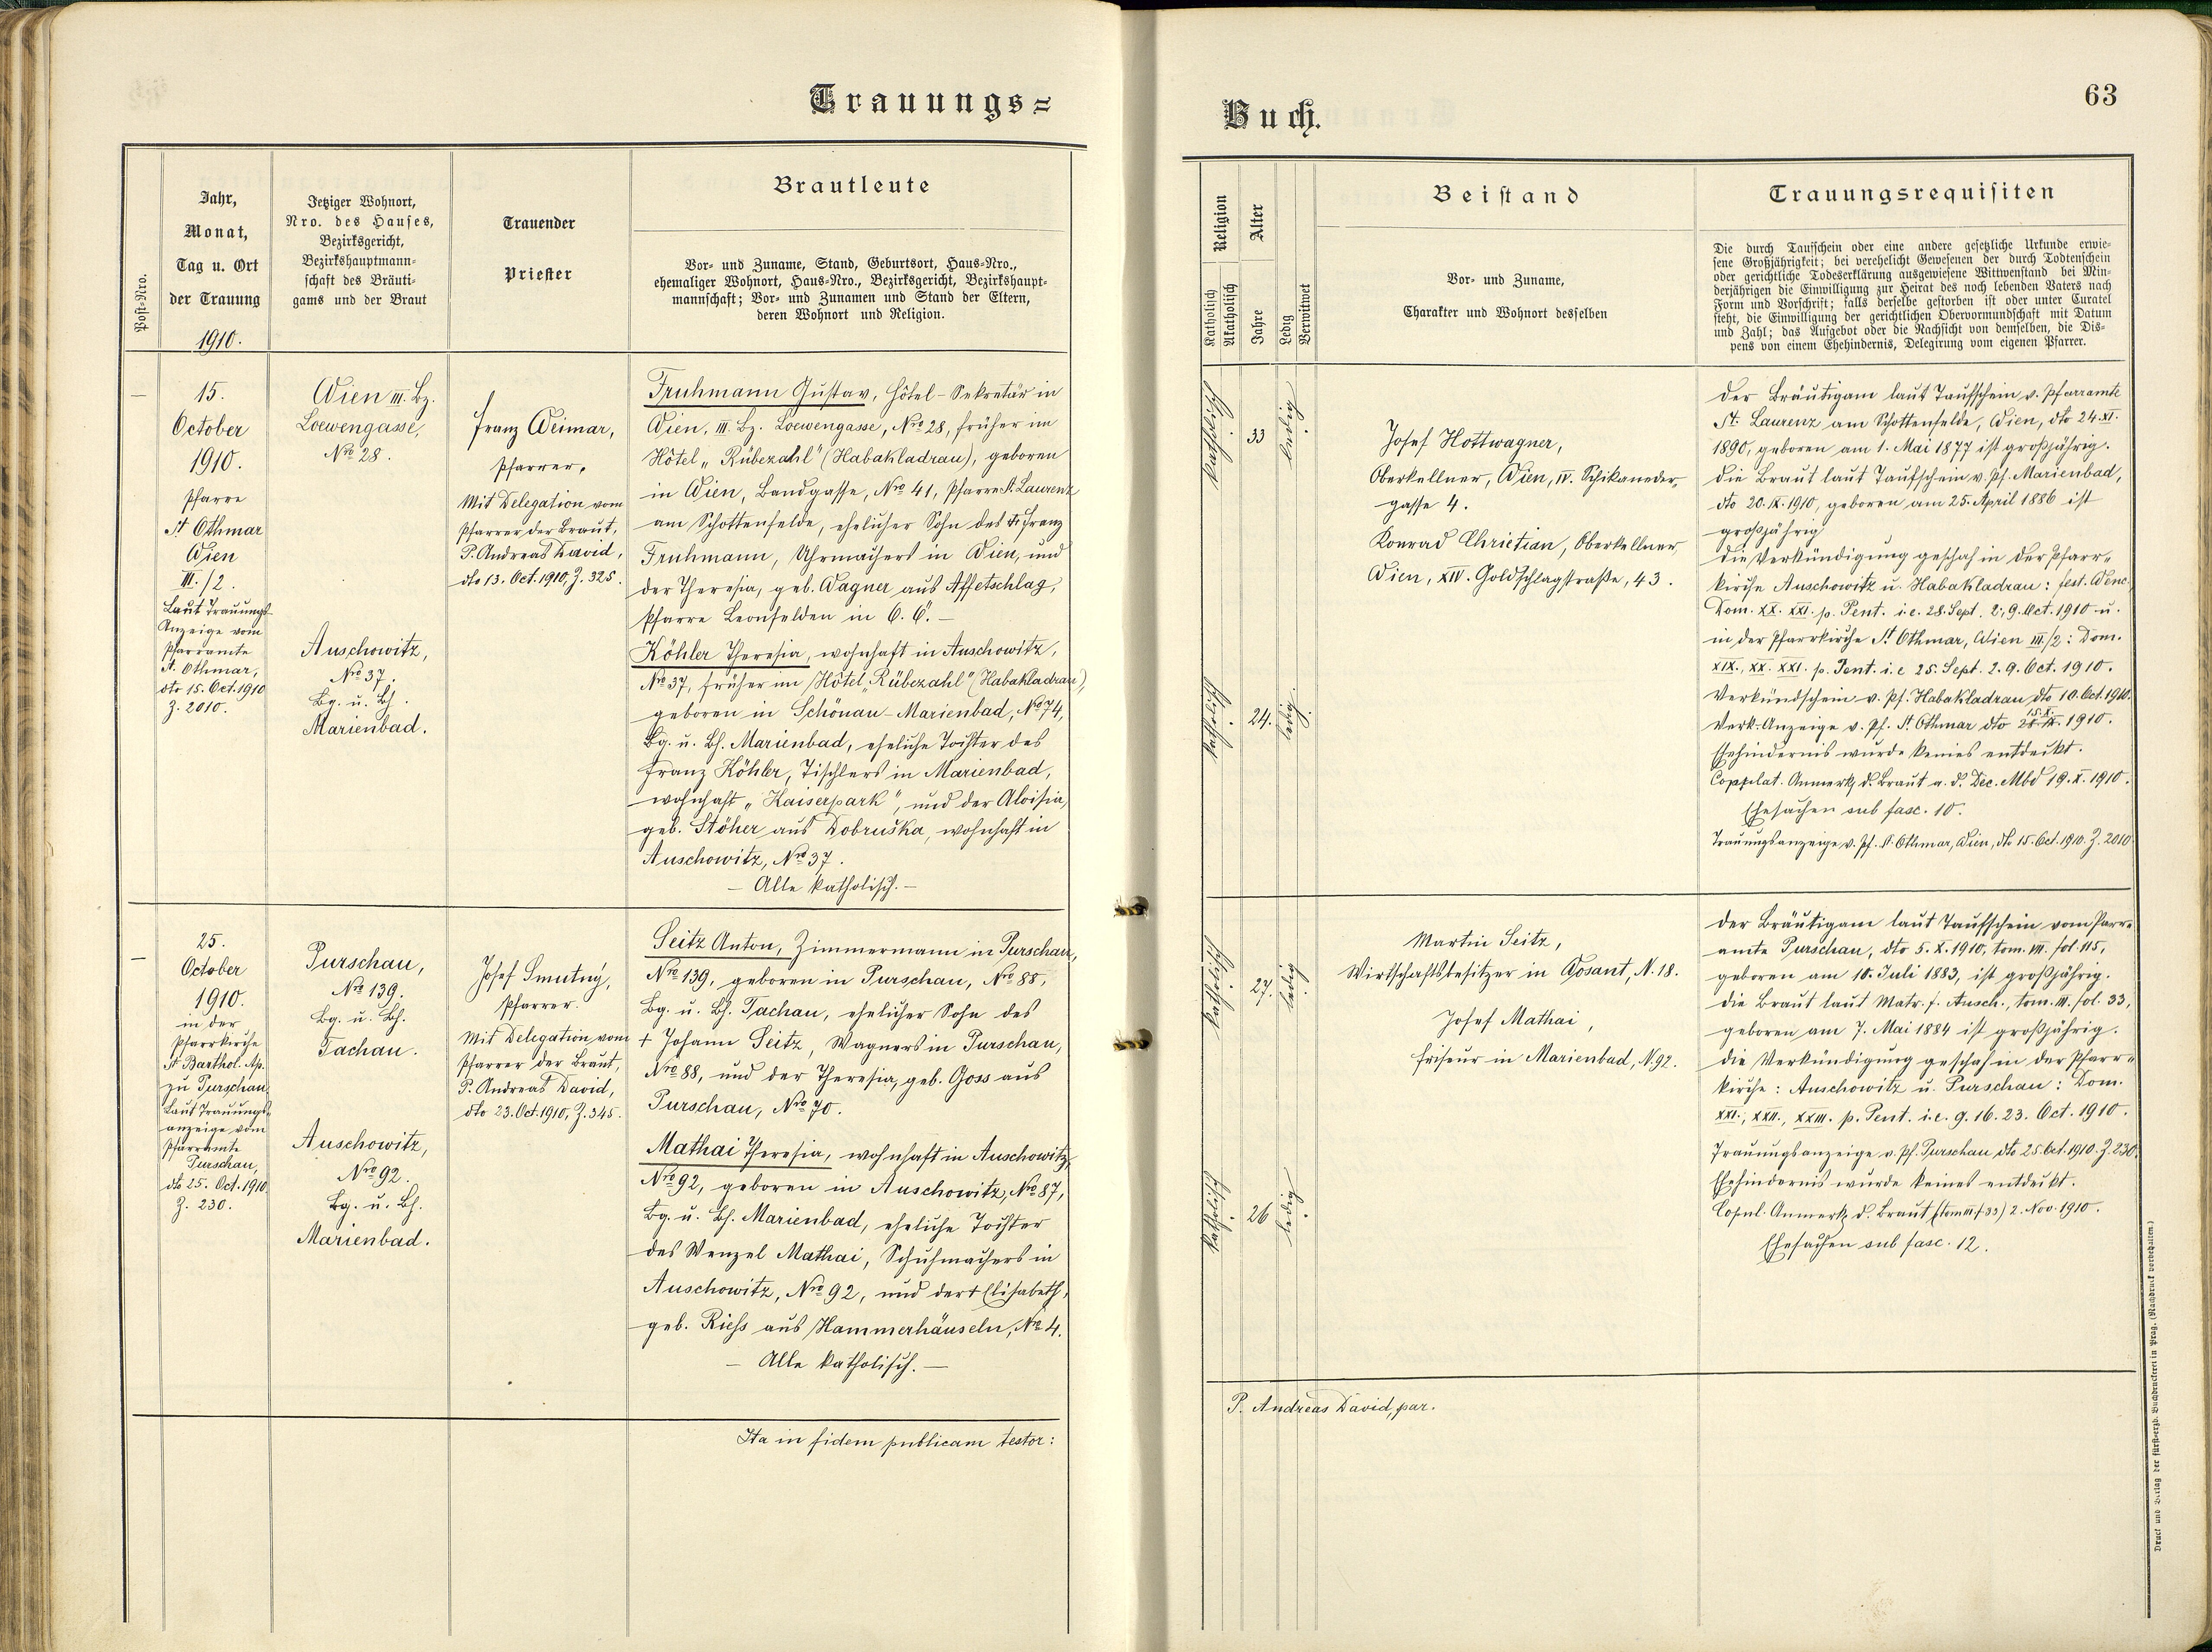 Trauungs=
Buch.
63
Post-Nro.
Jahr,
Monat,
Tag u. Ort
der Trauung
1910.
Jetziger Wohnort,
Nro. des Hauses,
Bezirksgericht,
Bezirkshauptmann-
schaft des Bräuti-
gams und der Braut
Trauender
Priester
Brautleute
Vor- und Zuname, Stand, Geburtsort, Haus-Nro.,
ehemaliger Wohnort, Haus-Nro., Bezirksgericht, Bezirkshaupt-
mannschaft; Vor- und Zunamen und Stand der Eltern,
deren Wohnort und Religion.
Religion
Katholisch
Akatholisch
Alter
Jahre
Ledig
Verwitwet
Beistand
Vor- und Zuname,
Charakter und Wohnort desselben
Trauungsrequisiten
Die durch Taufschein oder eine andere gesetzliche Urkunde erwie-
sene Großjährigkeit; bei verehelicht Gewesenen der durch Todtenschein
oder gerichtliche Todeserklärung ausgewiesene Wittwenstand bei Min-
derjährigen die Einwilligung zur Heirat des noch lebenden Vaters nach
Form und Vorschrift; falls derselbe gestorben ist oder unter Curatel
steht, die Einwilligung der gerichtlichen Obervormundschaft mit Datum
und Zahl; das Aufgebot oder die Nachsicht von demselben, die Dis-
pens von einem Ehehindernis, Delegirung vom eigenen Pfarrer.
—
15.
October
1910.
Pfarre
St Othmar
Wien
III./2.
Laut Trauungs-
Anzeige vom
Pfarramte
St. Othmar,
dto 15. Oct. 1910
Z. 2010.
Wien III. Bz.
Loewengasse,
Nro 28.
Auschowitz,
Nro 37.
Bg. u. Bh.
Marienbad.
Franz Weimar,
Pfarrer.
Mit Delegation vom
Pfarrer der Braut,
P. Andreas David,
dto 13. Oct. 1910, Z. 325.
Fruhmann Gustav, Hôtel-Sekretär in
Wien, III. Bz. Loewengasse, Nro 28, früher im
Hôtel „Rübezahl" (Habakladrau), geboren
in Wien, Bandgasse, Nro 41, Pfarre St. Laurenz
am Schottenfelde, ehelicher Sohn des † Franz
Fruhmann, Uhrmachers in Wien, und
der Theresia, geb. Wagner aus Affetschlag,
Pfarre Leonfelden in O. Ö. —
Köhler Theresia, wohnhaft in Auschowitz,
Nro 37, früher im Hôtel „Rübezahl" (Habakladrau),
geboren in Schönau-Marienbad, Nro 74,
Bg. u. Bh. Marienbad, eheliche Tochter des
Franz Köhler, Tischlers in Marienbad,
wohnhaft „Kaiserpark", und der Aloisia,
geb. Stöher aus Dobruška, wohnhaft in
Auschowitz, Nro 37.
— Alle katholisch. —
katholisch
33
ledig
katholisch
24.
ledig.
Josef Hottwagner,
Oberkellner, Wien, IV. Schikaneder-
gasse 4.
Konrad Christian, Oberkellner,
Wien, XIV. Goldschlagstraße, 43.
Der Bräutigam laut Taufschein v. Pfarramte
St. Laurenz am Schottenfelde, Wien, dto 24. XI.
1890, geboren am 1. Mai 1877 ist großjährig.
Die Braut laut Taufschein v. Pf. Marienbad,
dto 20. IX. 1910, geboren am 25. April 1886 ist
großjährig
Die Verkündigung geschah in der Pfarr-
kirche Auschowitz u. Habakladrau: fest. Wenc.
Dom. XX. XXI. p. Pent. i.e. 28. Sept. 2., 9. Oct. 1910 u.
in der Pfarrkirche St Othmar, Wien III/2: Dom.
XIX., XX. XXI. p. Pent. i.e 25. Sept. 2. 9. Oct. 1910.
Verkündschein v. Pf. Habakladrau dto 10. Oct. 1910.
Verk. Anzeige v. Pf. St Othmar dto 15. X. 1910.
Ehehindernis wurde keines entdeckt.
Copulat. Anmerkg d. Braut a. d. Dec. Mbd 19. X. 1910.
Ehesachen sub fasc. 10.
Trauungsanzeige v. Pf. St. Othmar, Wien, dto 15. Oct. 1910. Z. 2010.
—
25.
October
1910.
in der
Pfarrkirche
St Barthol. Ap.
zu Purschau
Laut Trauungs-
anzeige vom
Pfarramte
Purschau,
dto 25. Oct. 1910
Z. 230.
Purschau,
Nro 139.
Bg. u. Bh.
Tachau.
Auschowitz,
Nro 92.
Bg. u. Bh.
Marienbad.
Josef Smutný,
Pfarrer.
Mit Delegation vom
Pfarrer der Braut,
P. Andreas David,
dto 23. Oct. 1910, Z. 345.
Seitz Anton, Zimmermann in Purschau,
Nro 139, geboren in Purschau, Nro 88,
Bg. u. Bh. Tachau, ehelicher Sohn des
† Johann Seitz, Wagners in Purschau,
Nro 88, und der Theresia, geb. Goss aus
Purschau, Nro 70.
Mathai Theresia, wohnhaft in Auschowitz,
Nro 92, geboren in Auschowitz, Nro 87,
Bg. u. Bh. Marienbad, eheliche Tochter
des Wenzel Mathai, Schuhmachers in
Auschowitz, Nro 92, und der † Elisabeth,
geb. Riehs aus Hammerhäuseln, Nro 4.
— Alle katholisch. —
katholisch
27.
ledig
katholisch
26
ledig
Martin Seitz,
Wirtschaftsbesitzer in Wosant, N. 18.
Josef Mathai,
Friseur in Marienbad, N. 92.
Der Bräutigam laut Taufschein vom Pfarr-
amte Purschau, dto 5. X. 1910, tom. VII. fol. 115,
geboren am 10. Juli 1883, ist großjährig.
Die Braut laut Matr. f. Ausch., tom. III. fol. 33,
geboren am 7. Mai 1884 ist großjährig.
Die Verkündigung geschah in der Pfarr-
kirche: Auschowitz u. Purschau: Dom.
XXI., XXII., XXIII. p. Pent. i.e. 9. 16. 23. Oct. 1910.
Trauungsanzeige v. Pf. Purschau dto 25. Oct. 1910. Z. 230.
Ehehindernis wurde keines entdeckt.
Copul. Anmerkg d. Braut (tom III f 33) 2. Nov. 1910.
Ehesachen sub fasc. 12.
Ita in fidem publicam testor:
P. Andreas David, par.
Druck und Verlag der fürst-erzb. Buchdruckerei in Prag. (Nachdruck vorbehalten.)